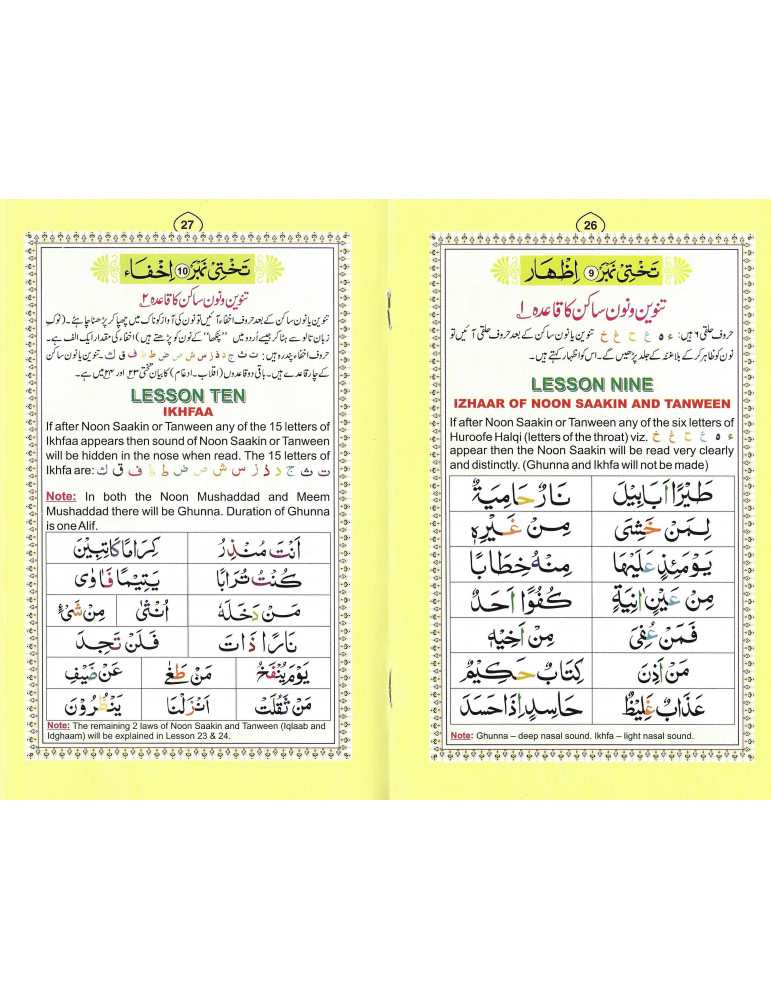 26
تختی نمبر 9 اظهار
تنوین و نون ساکن کا قاعدہ ۱
حروف حلقی ۶ ہیں: ء ہ ع ح غ خ تنوین یا نون ساکن کے بعد حروف حلقی آئیں تو
نون کو ظاہر کر کے بلا غنہ کے جلد پڑھیں گے۔ اس کو اظہار کہتے ہیں۔
LESSON NINE
IZHAAR OF NOON SAAKIN AND TANWEEN
If after Noon Saakin or Tanween any of the six letters of
Huroofe Halqi (letters of the throat) viz. ء ہ ع ح غ خ
appear then the Noon Saakin will be read very clearly
and distinctly. (Ghunna and Ikhfa will not be made)
طَيْرًا اَبَابِيْلَ نَارٌ حَامِيَةٌ
لِمَنْ خَشِیَ مِنْ غَيْرِهٖ
يَوْمَئِذٍ عَلَيْهَا مِنْهُ خِطَابًا
مِنْ عَيْنٍ اٰنِيَةٍ كُفُوًا اَحَدٌ
فَمَنْ عُفِیَ مِنْ اَخِيْهِ
مَنْ اَذِنَ كِتَابٌ حَكِيْمٌ
عَذَابٌ غَلِيْظٌ حَاسِدٍ اِذَا حَسَدَ
Note: Ghunna – deep nasal sound. Ikhfa – light nasal sound.
27
تختی نمبر 10 اخفاء
تنوین و نون ساکن کا قاعدہ ۲
تنوین یا نون ساکن کے بعد حروف اخفاء آئیں تو نون کی آواز کو ناک میں چھپا کر پڑھنا چاہئے۔ (نوکِ
زبان تالو سے ہٹا کر جیسے اُردو میں "پنکھا" کے نون کو پڑھتے ہیں) اخفاء کی مقدار ایک الف ہے۔
حروف اخفاء پندرہ ہیں: ت ث ج د ذ ز س ش ص ض ط ظ ف ق ک۔ تنوین یا نون ساکن
کے چار قاعدے ہیں۔ باقی دو قاعدوں (اقلاب۔ ادغام) کا بیان تختی ۲۳ اور ۲۴ میں ہے۔
LESSON TEN
IKHFAA
If after Noon Saakin or Tanween any of the 15 letters of
Ikhfaa appears then sound of Noon Saakin or Tanween
will be hidden in the nose when read. The 15 letters of
Ikhfa are: ت ث ج د ذ ز س ش ص ض ط ظ ف ق ك
Note: In both the Noon Mushaddad and Meem
Mushaddad there will be Ghunna. Duration of Ghunna
is one Alif.
اَنْتَ مُنْذِرُ كِرَامًا كَاتِبِيْنَ
كُنْتُ تُرَابًا يَتِيْمًا فَاٰوٰى
مَنْ دَخَلَهٗ اُنْثٰى مِنْ شَیْءٍ
نَارًا ذَاتَ فَلَنْ تَجِدَ
يَوْمَ يُنْفَخُ مَنْ طَغٰى عَنْ ضَيْفِ
مَنْ ثَقُلَتْ اَنْزَلْنَا يَنْظُرُوْنَ
Note: The remaining 2 laws of Noon Saakin and Tanween (Iqlaab and
Idghaam) will be explained in Lesson 23 & 24.